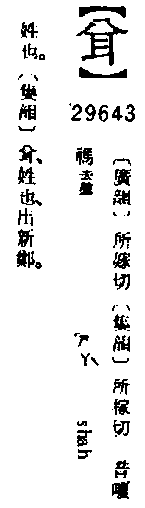 【】
29643
〔廣韻〕所嫁切〔集韻〕所稼切 音嗄
禡去聲 ㄕㄚˋ shah
姓也。〔集韻〕、姓也、出新鄭。